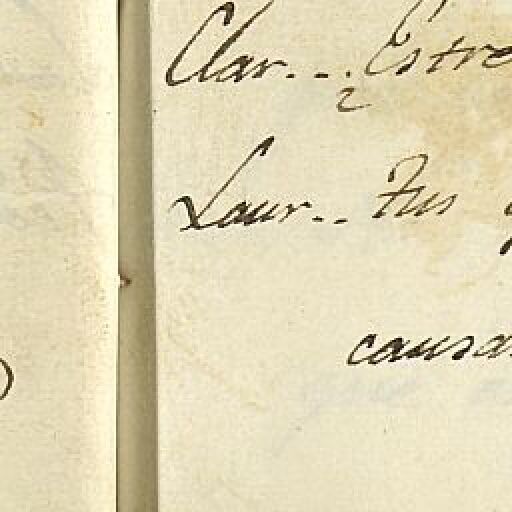 Clar... ¿Estre
Laur.. Tus
causa